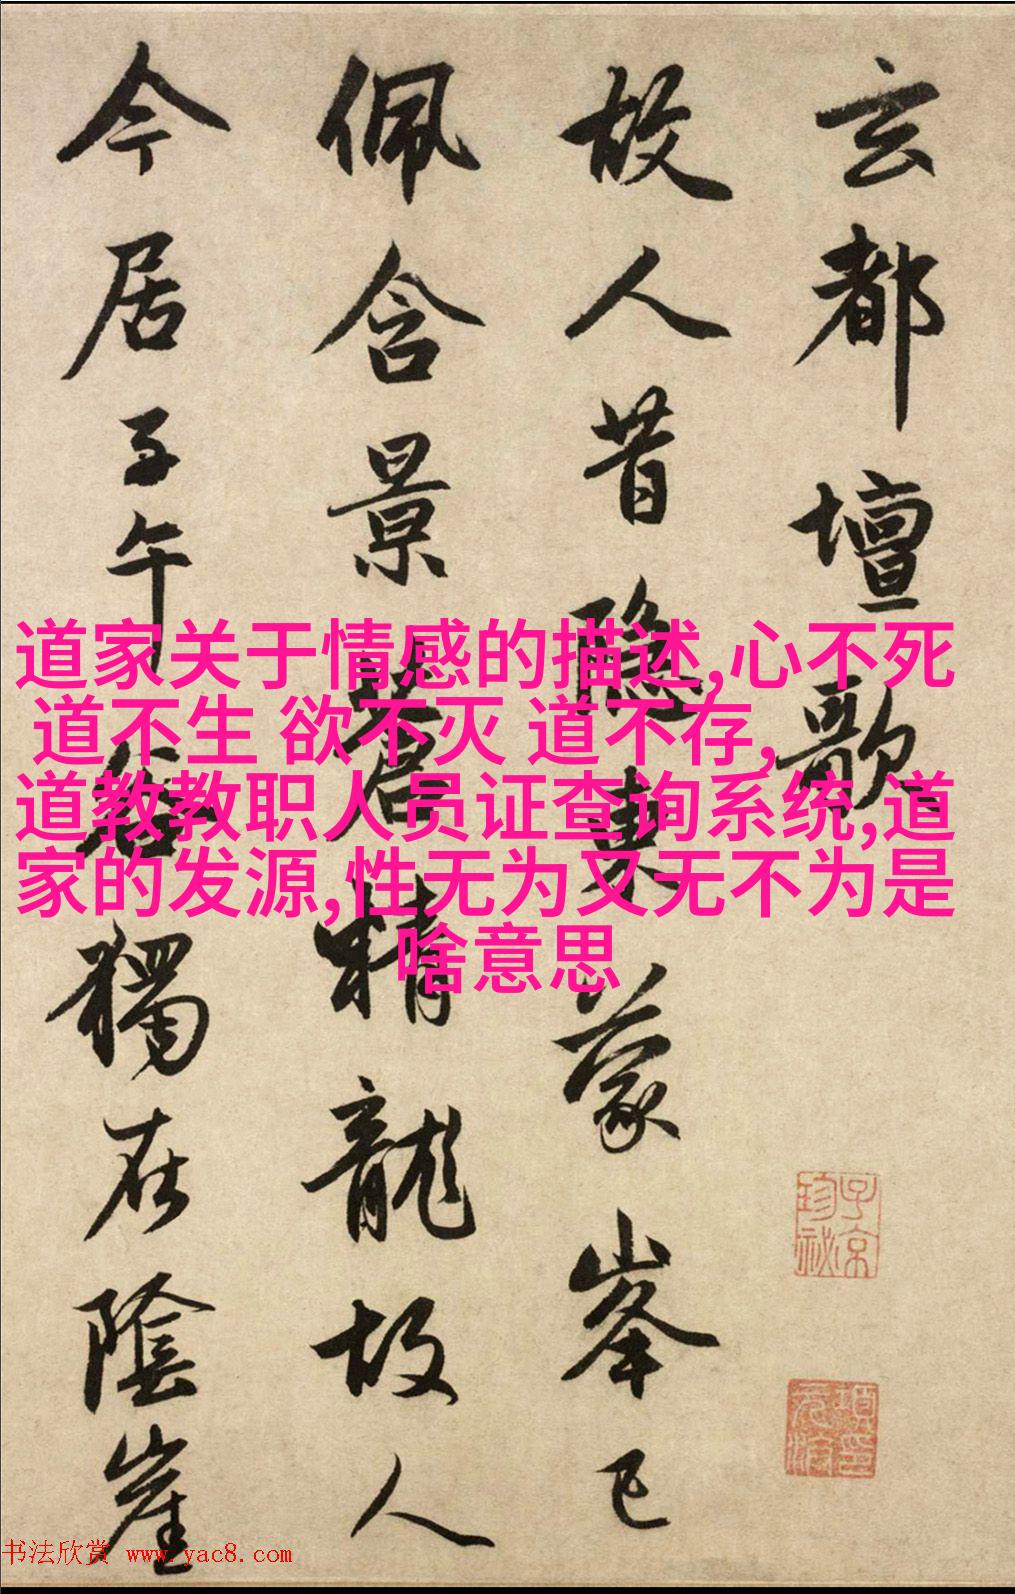 玄都壇歌
故人昔隱東蒙峯已
佩含景蒼精龍故人
今居子午谷獨在陰崖
道家关于情感的描述,心不死
道不生 欲不灭 道不存,
道教教职人员证查询系统,道
家的发源,性无为又无不为是
啥意思
子京
珍祕
书法欣赏 www.yac8.com